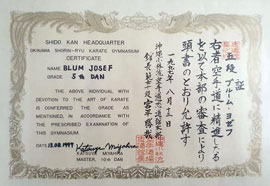 SHIDO KAN HEADQUARTER
OKINAWA SHORIN-RYU KARATE GYMNASIUM
CERTIFICATE
NAME BLUM JOSEF
GRADE 5th DAN
THE ABOVE INDIVIDUAL WITH
DEVOTION TO THE ART OF KARATE
IS CONFERRED THE GRADE AS
MENTIONED, IN ACCORDANCE WITH
PRESCRIBED EXAMINATION OF
THIS GYMNASIUM
DATED 13.08.1997
KATSUYA MIYAHIRA
MASTER, 10th DAN
証
五段 ブルーム・ヨゼフ
右者空手道に精進したる
を以て本部の審査により
頭書のとおり允許す
一九九七年八月十三日